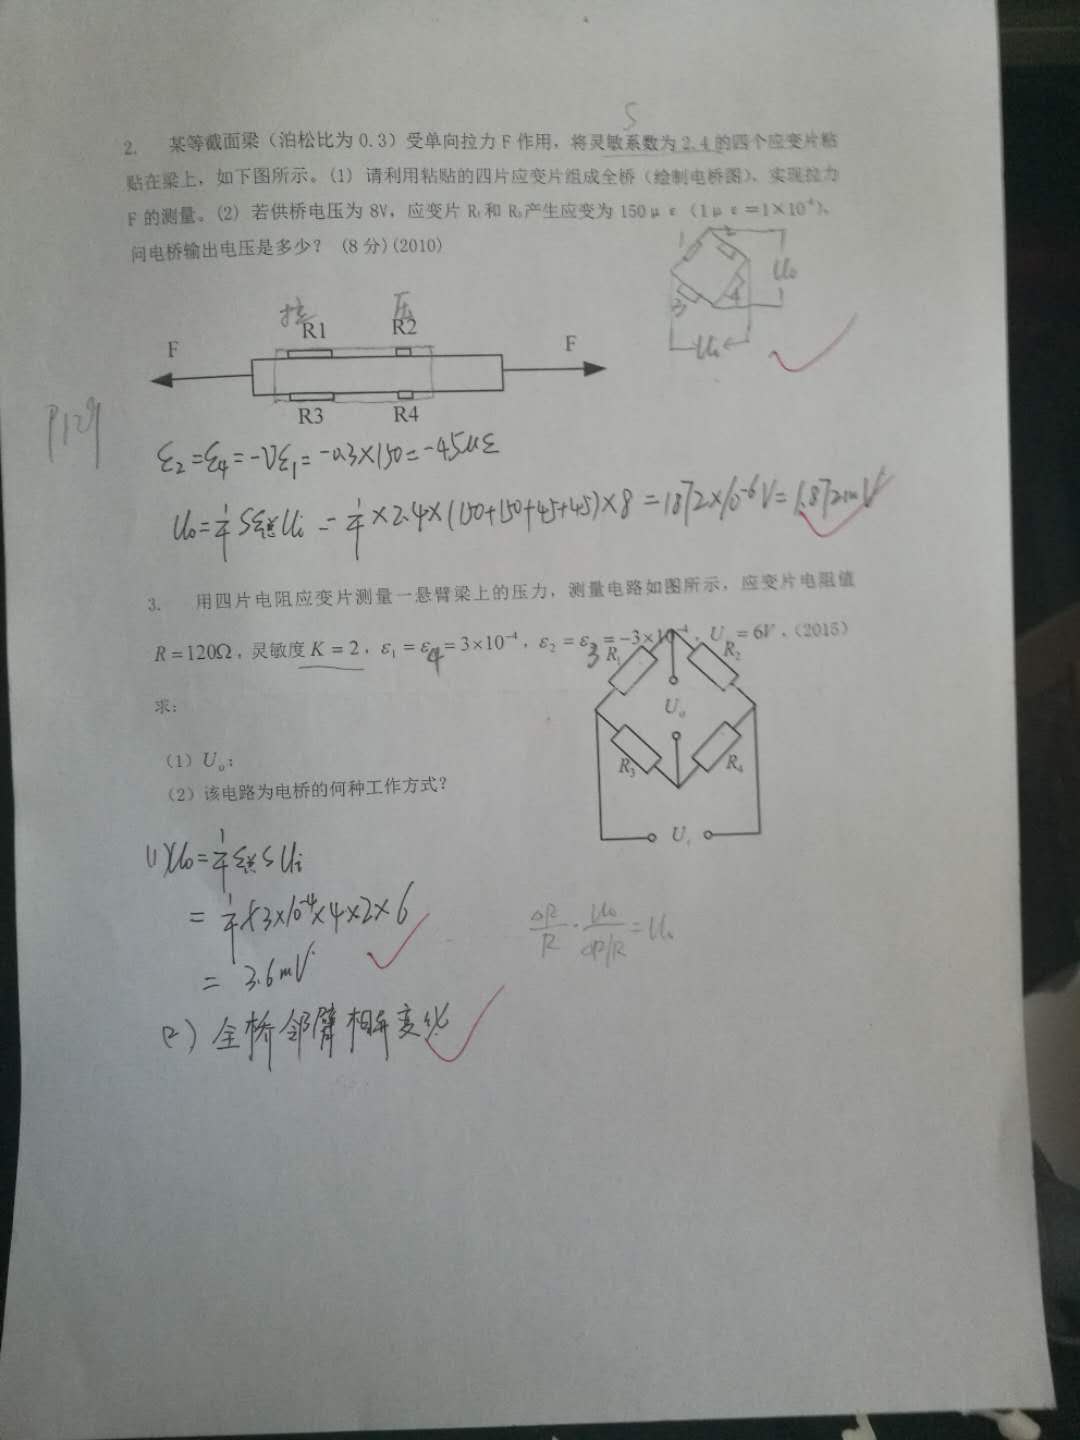 S
2. 某等截面梁（泊松比为 0.3）受单向拉力 F 作用，将灵敏系数为 2.4 的四个应变片粘
贴在梁上，如下图所示。(1) 请利用粘贴的四片应变片组成全桥（绘制电桥图），实现拉力
F 的测量。(2) 若供桥电压为 8V，应变片 R₁和 R₃产生应变为 150με（1με=1×10⁻⁶），
问电桥输出电压是多少？ (8 分)(2010)
1 2
3 4
U₀
Uᵢ
拉 压
R1 R2
F F
R3 R4
P129
ε₂=ε₄=-νε₁=-0.3×150=-45με
U₀=¼Sε总Uᵢ=¼×2.4×(150+150+45+45)×8=1872×10⁻⁶V=1.872mV
3. 用四片电阻应变片测量一悬臂梁上的压力，测量电路如图所示，应变片电阻值
R=120Ω，灵敏度 K=2，ε₁=ε₄=3×10⁻⁴，ε₂=ε₃=-3×10⁻⁴，U =6V，(2015)
求：
R₁ R₂
U₀
（1）Uₒ；
R₃ R₄
（2）该电路为电桥的何种工作方式？
Uᵢ
(1) U₀=¼ε总SUᵢ
=¼×3×10⁻⁴×4×2×6
=3.6mV
ΔR/R·U₀/ΔR/R=U₀
(2) 全桥邻臂相异变化